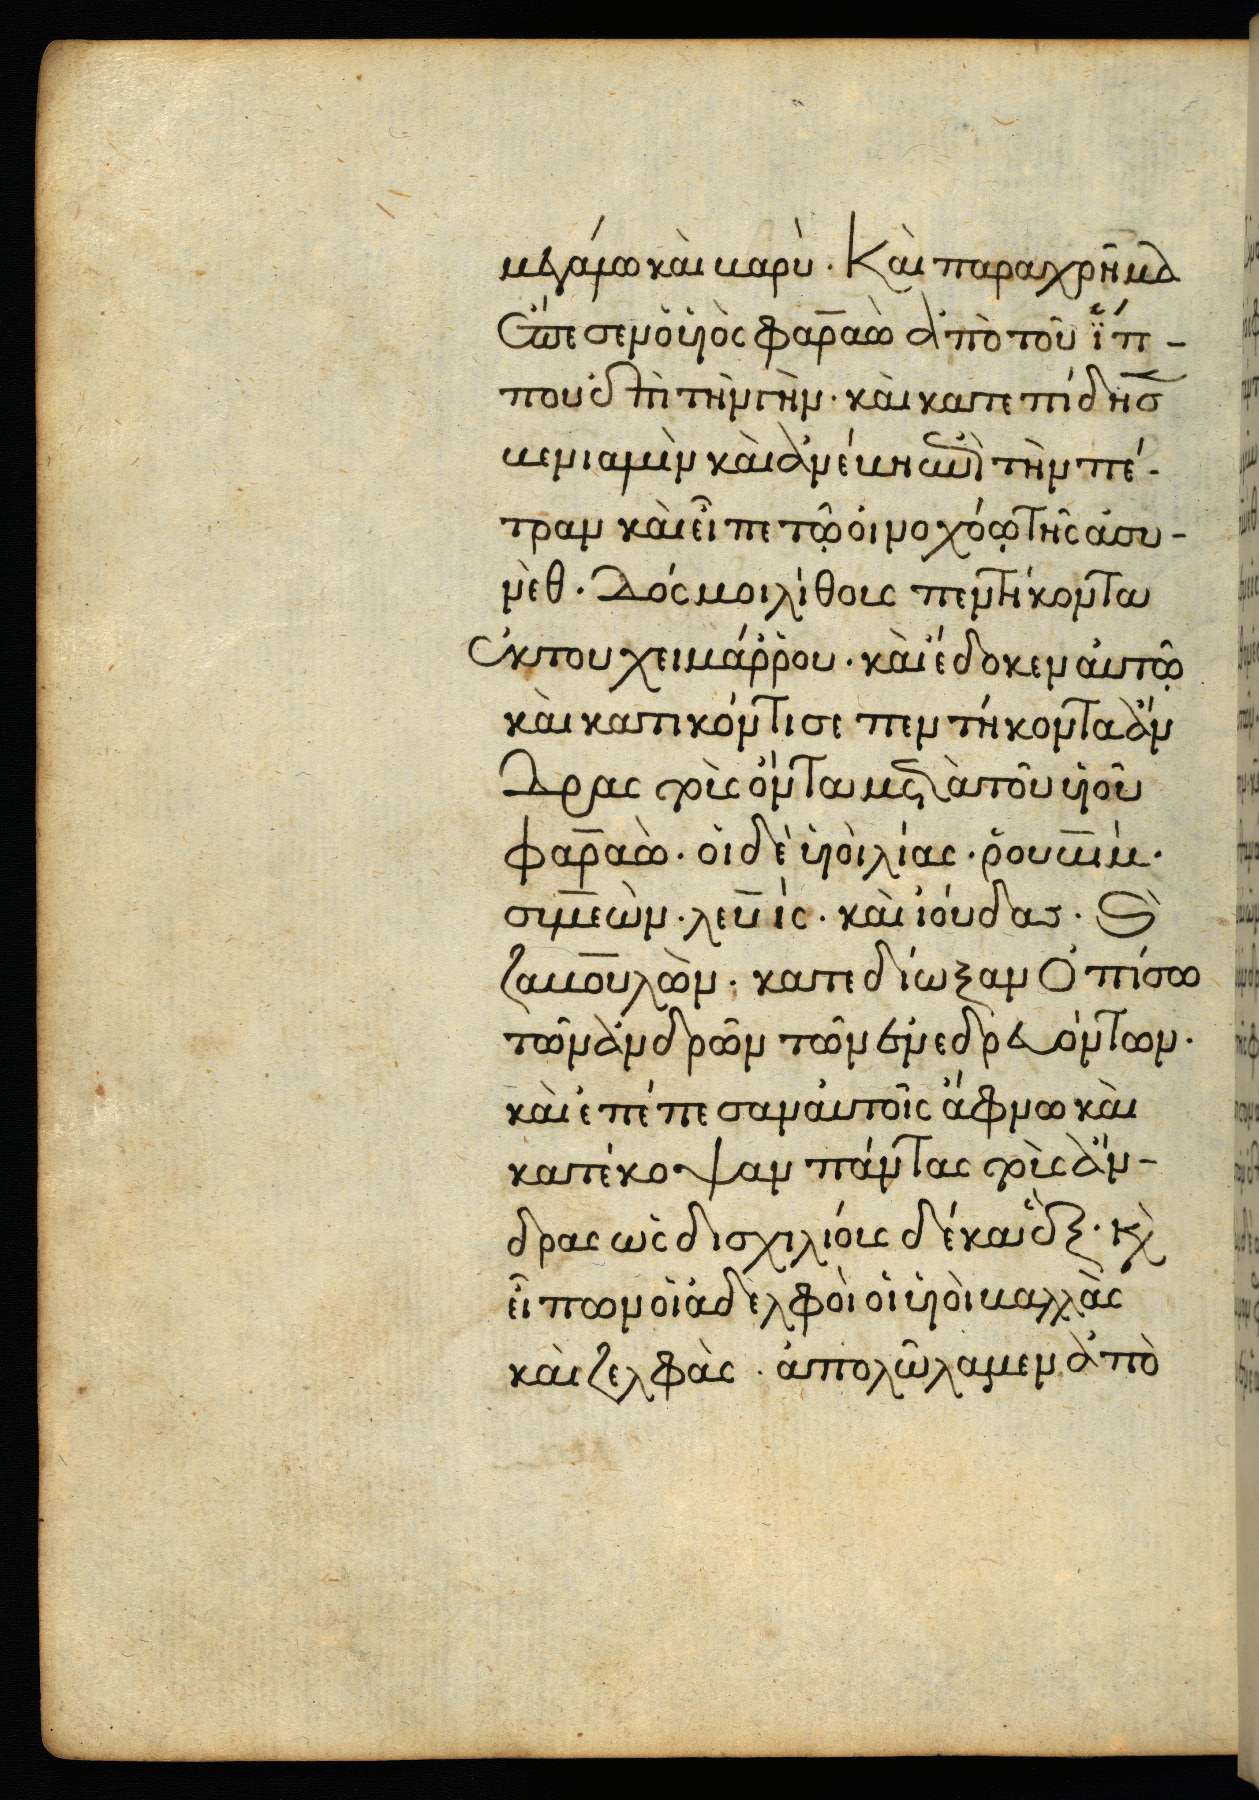 μεγάμω και βαρύ. Και παραχρῆμα
ἔπεσεν ὁ ὑιὸς φαραὼ ἀπὸ τοῦ ἵπ-
που ἐπὶ τὴν γῆν. και κατεπίδησ
βενιαμὴν και ἀνέβη ἐπὶ τὴν πέ-
τραν και εἶπε τῷ ὁινοχόῳ τῆς ἀσυ-
νὲθ. Δός μοι λίθους πεντήκοντα
ἐκ του χειμάῤῥου. και ἔδοκεν αὐτῷ
και κατικόντισε πεντήκοντα ἄν
δρας τοὺς ὄντας μετὰ τοῦ ὑιοῦ
φαραὼ. οἱ δὲ ὑιοὶ λίας. ῥουβίμ.
σιμεὼν. λευίς. και ἰούδας. καὶ
ζαβουλὼν. κατεδίωξαν ὀπίσω
τῶν ἀνδρῶν τῶν ἐνεδρευόντων.
και ἐπέπεσαν αὐτοῖς ἄφνω και
κατέκοψαν πάντας τοὺς ἄν-
δρας ὡς δισχιλίους δέκα ἓξ. κὶ
εἶπων οἱ ἀδελφοὶ οἱ ὑιοὶ βαλλὰς
και ζελφὰς. ἀπολῶλαμεν ἀπὸ